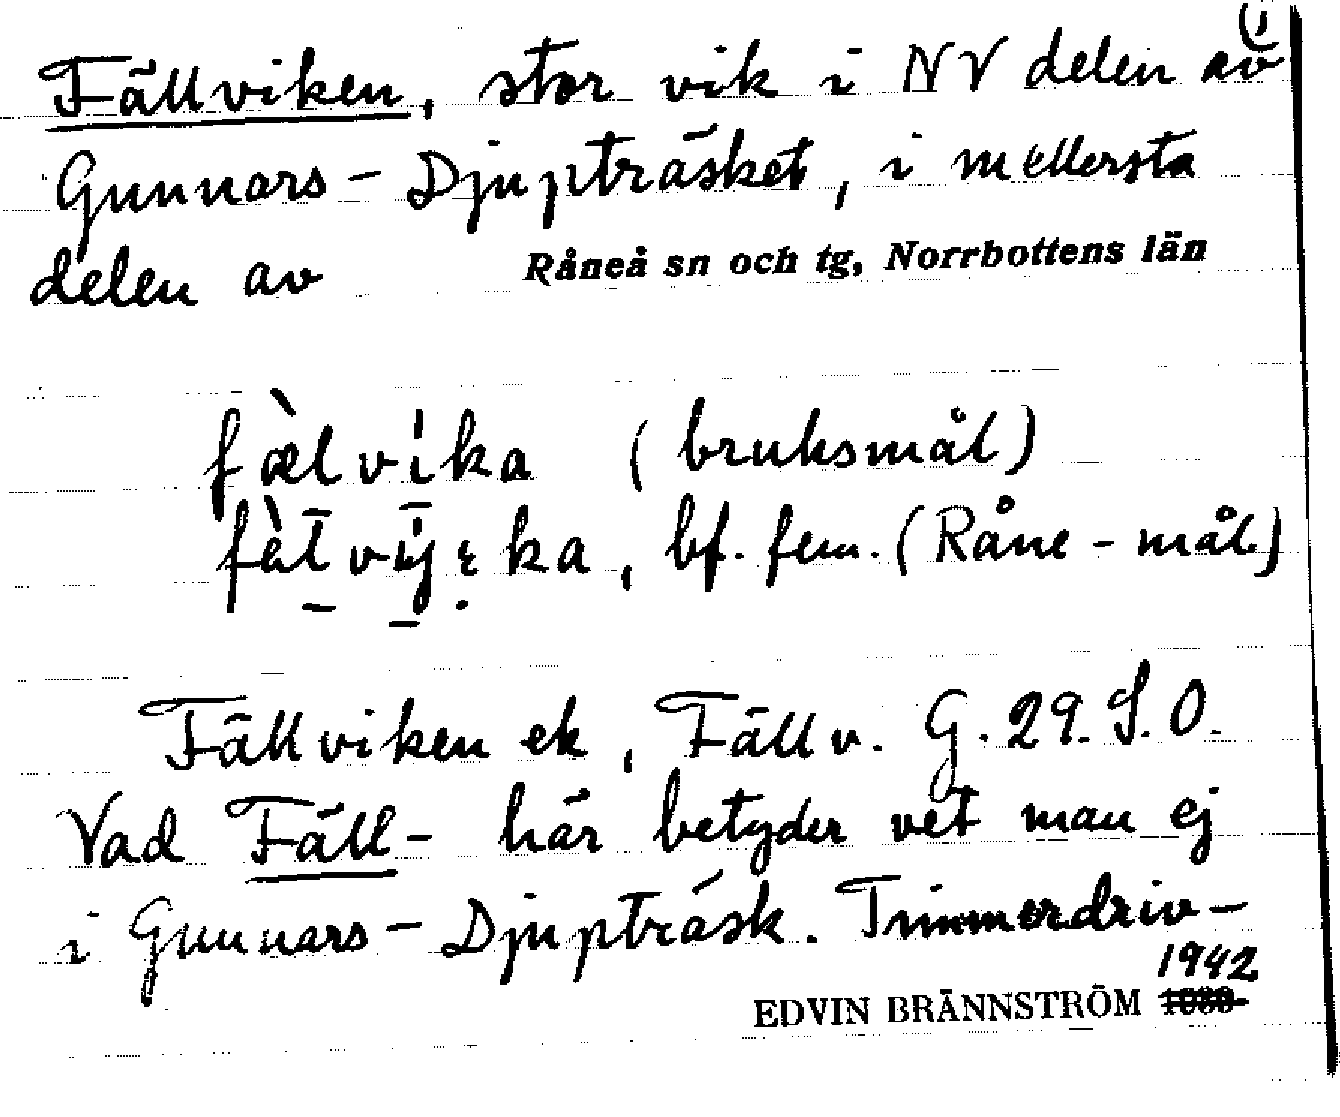 (1
Fällviken, stor vik i NV delen av
Gunnars-Djupträsket, i mellersta
delen av Råneå sn och tg, Norrbottens län
fæ̀lvika (bruksmål)
bf. fem. (Råne-mål)
Fällviken ek, Fällv. G. 29. S.O.
Vad Fäll- här betyder vet man ej
i Gunnars-Djupträsk. Timmerdriv-
1942
EDVIN BRÄNNSTRÖM